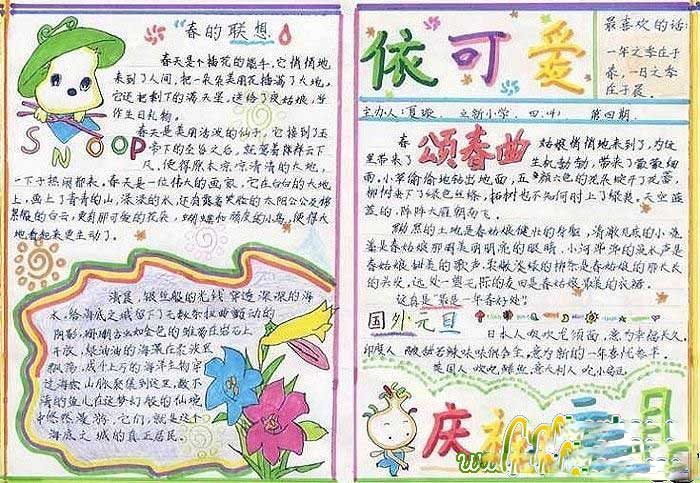 春的联想
春天是个插花的能手，它悄悄地
来到了人间，把一朵朵美丽花插满了大地，
它还把剩下的满天星，送给了夜姑娘，当
作生日礼物。
SNOOP
春天是美丽活泼的仙子，它接到玉
帝下的圣旨后，就驾着祥云下
凡，使得原本凉凉清清的大地，
一下子热闹都来，春天是一位伟大的画家，它在白白的大地
上，画上了青青的山，深深的水，还有露着笑脸的太阳公公及棉
景般的白云，更有那可爱的花朵，蝴蝶和顽皮的小鸟，使得大
地看起来更生动了。
清晨，银丝般的光线穿透深深的海
水，给海底之城留下了无数条扭曲颤动的
阴影，珊瑚宛如金色的雏菊在岩石上
开放，绿油油的海藻在水波里
飘荡，成千上万的海洋生物穿
过海底山脉聚集到这里，数不
清的鱼儿在这梦幻般的仙境
中悠然漫游，它们，就是这个
海底之城的真正居民。
依可爱
最喜欢的话：
一年之季在于
春，一日之季
在于晨。
主办人：夏璇 立新小学 四.(4) 第四期.
颂春曲
春姑娘悄悄地来到了，为这
里带来了生机勃勃，带来了微微细
雨。小草偷偷地钻出地面，五颜六色的花朵绽开了花蕾，
柳树垂下了绿色丝绦，柘树也不知何时上了绿装。天空蓝
蓝的，阵阵大雁朝南飞。
黝黑的土地是春姑娘健壮的身躯，清澈见底的小溪
是春姑娘那明亮明亮的眼睛，小河潺潺的流水声是
春姑娘甜美的歌声，
的头发，这处一望无际的麦田是春姑娘最美的衣裙。
这真是“最是一年春好处”
国外元旦
日本人吃吃龙须面，意为幸福长久。
印度人 酸甜苦辣味味俱全，意为新的一年喜忧参半。
英国人 吃吃鲜鱼 意大利人 吃小扁豆
庆祝元旦